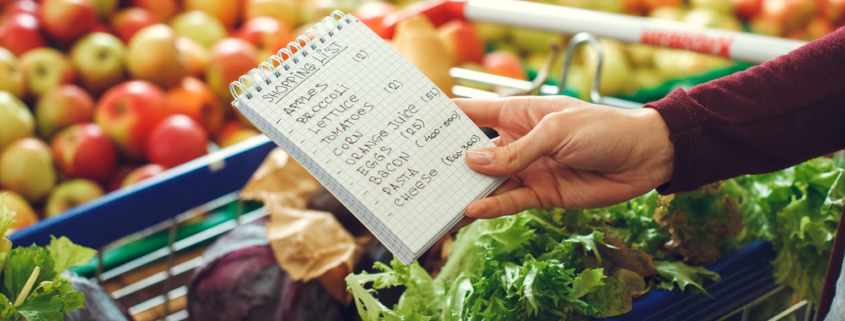 SHOPPING LIST
- APPLES (2)
- BROCCOLI
- LETTUCE
- TOMATOES (2)
- CORN
- ORANGE JUICE (5L)
- EGGS (25)
- BACON (400-500)
- PASTA
- CHEESE (450)